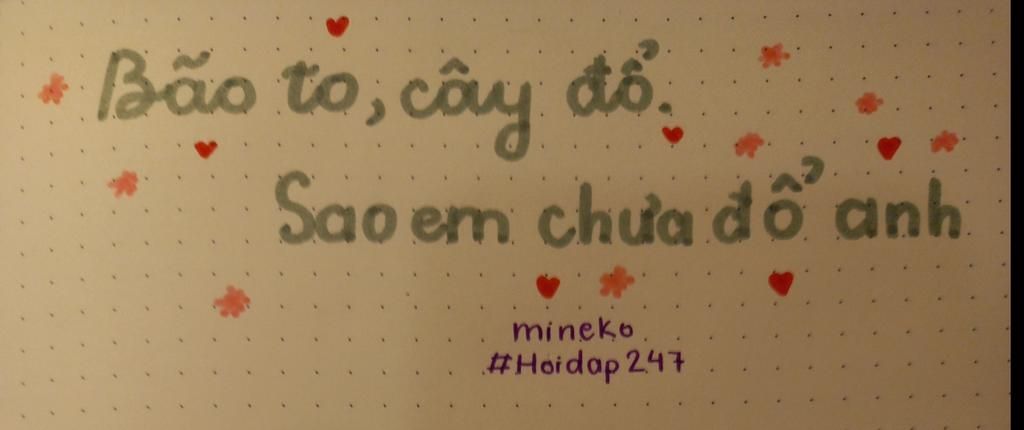 Bão to, cây đổ.
Sao em chưa đổ anh
mineko
#Hoidap247